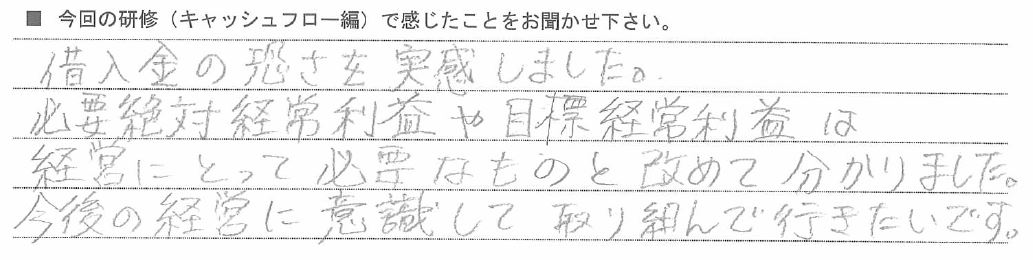 ■ 今回の研修（キャッシュフロー編）で感じたことをお聞かせ下さい。
借入金の恐さを実感しました。
必要絶対経常利益や目標経常利益は
経営にとって必要なものと改めて分かりました。
今後の経営に意識して取り組んで行きたいです。